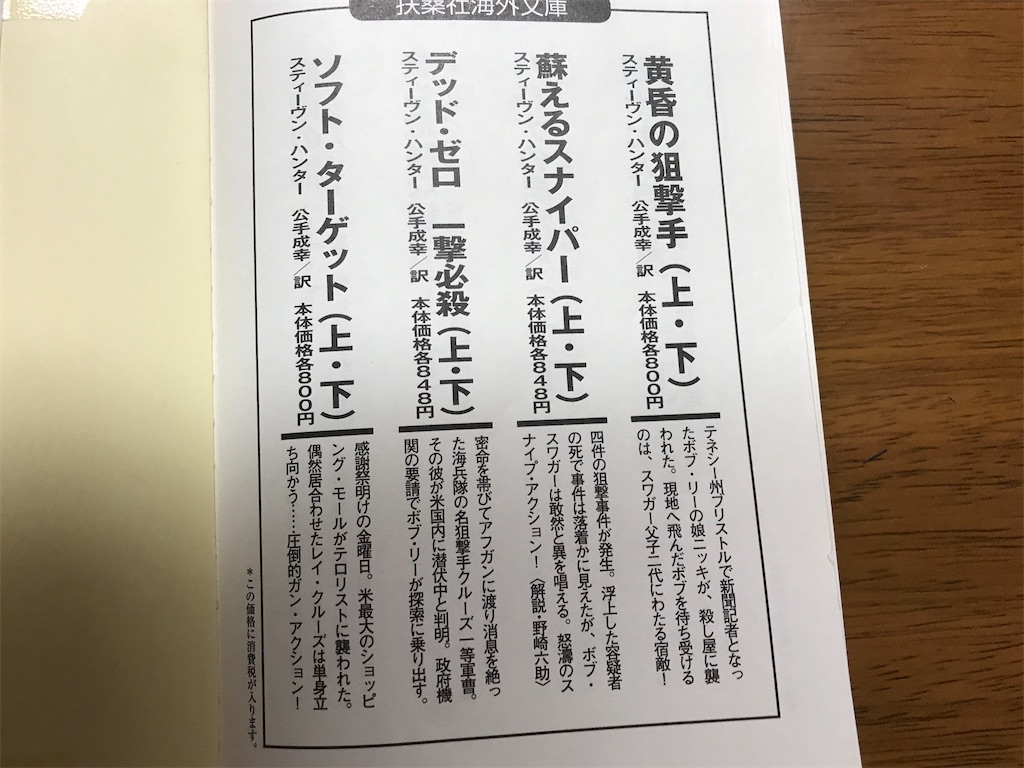 扶桑社海外文庫
黄昏の狙撃手(上・下)
スティーヴン・ハンター 公手成幸/訳 本体価格各800円
テネシー州ブリストルで新聞記者となっ
たボブ・リーの娘ニッキが、殺し屋に襲
われた。現地へ飛んだボブを待ち受ける
のは、スワガー父子二代にわたる宿敵!
蘇えるスナイパー(上・下)
スティーヴン・ハンター 公手成幸/訳 本体価格各848円
四件の狙撃事件が発生。浮上した容疑者
の死で事件は落着かに見えたが、ボブ・
スワガーは敢然と異を唱える。怒濤のス
ナイプ・アクション!〈解説・野崎六助〉
デッド・ゼロ 一撃必殺(上・下)
スティーヴン・ハンター 公手成幸/訳 本体価格各848円
密命を帯びてアフガンに渡り消息を絶っ
た海兵隊の名狙撃手クルーズ一等軍曹。
その彼が米国内に潜伏中と判明。政府機
関の要請でボブ・リーが探索に乗り出す。
ソフト・ターゲット(上・下)
スティーヴン・ハンター 公手成幸/訳 本体価格各800円
感謝祭明けの金曜日。米最大のショッピ
ング・モールがテロリストに襲われた。
偶然居合わせたレイ・クルーズは単身立
ち向かう……圧倒的ガン・アクション!
*この価格に消費税が入ります。